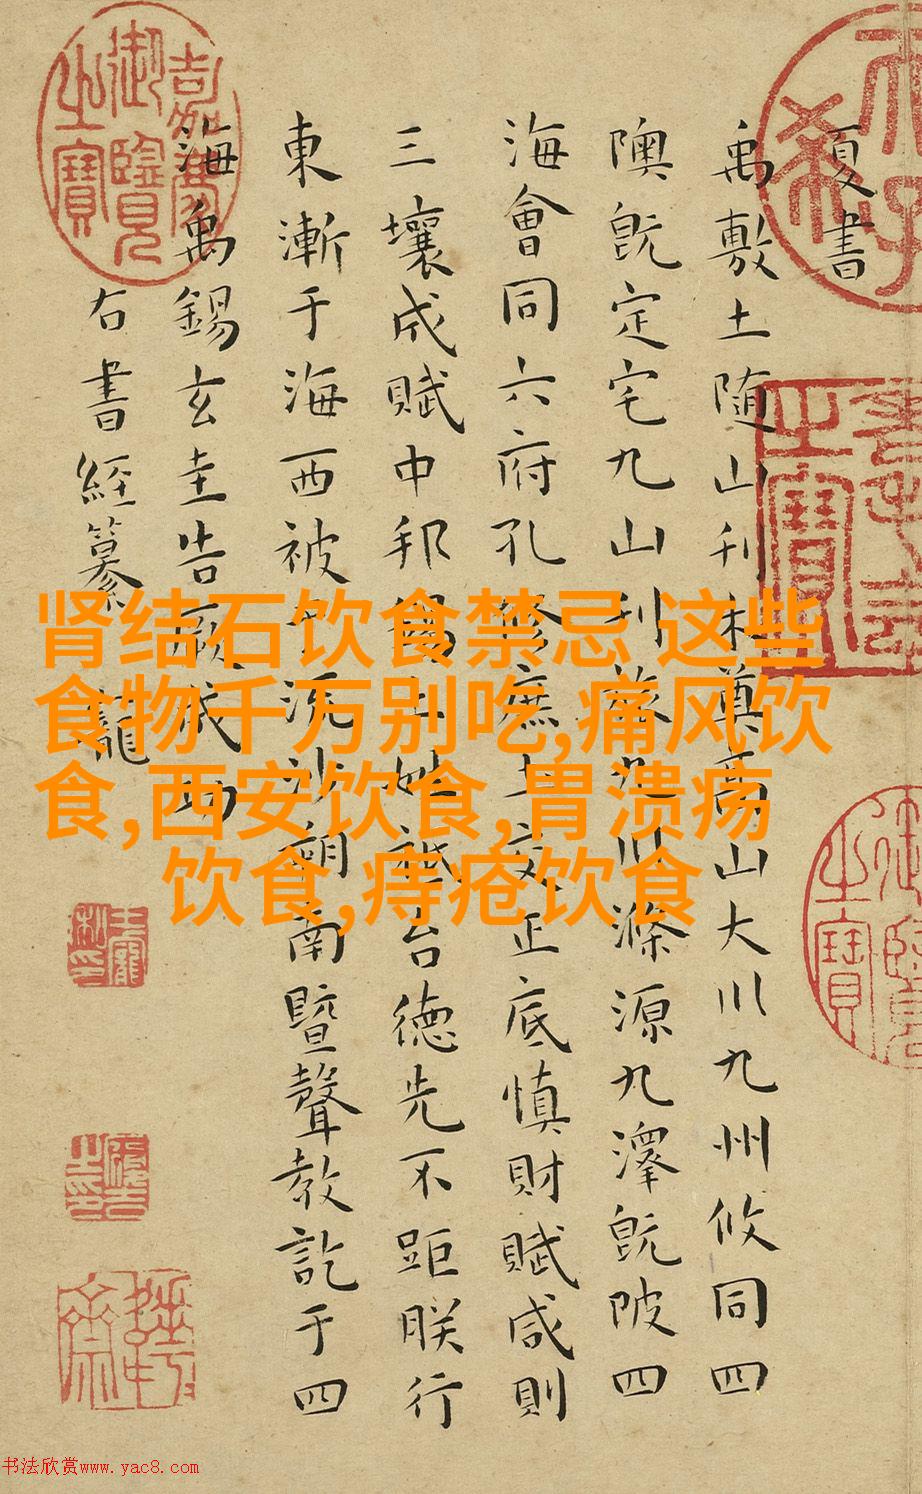 夏書
禹敷土随山刊木奠高山大川九州攸同四
隩既定宅九山刊旅九川滌源九澤既陂四
海會同六府孔修庶土交正底慎財賦咸則
三壤成賦中邦錫土姓祗台德先不距朕行
東漸于海西被于流沙朔南暨聲教訖于四
海禹錫玄圭告厥成功
右書經纂 寵
嘉慶御覽之寶
肾结石饮食禁忌 这些
食物千万别吃,痛风饮
食,西安饮食,胃溃疡
饮食,痔疮饮食
书法欣赏www.yac8.com